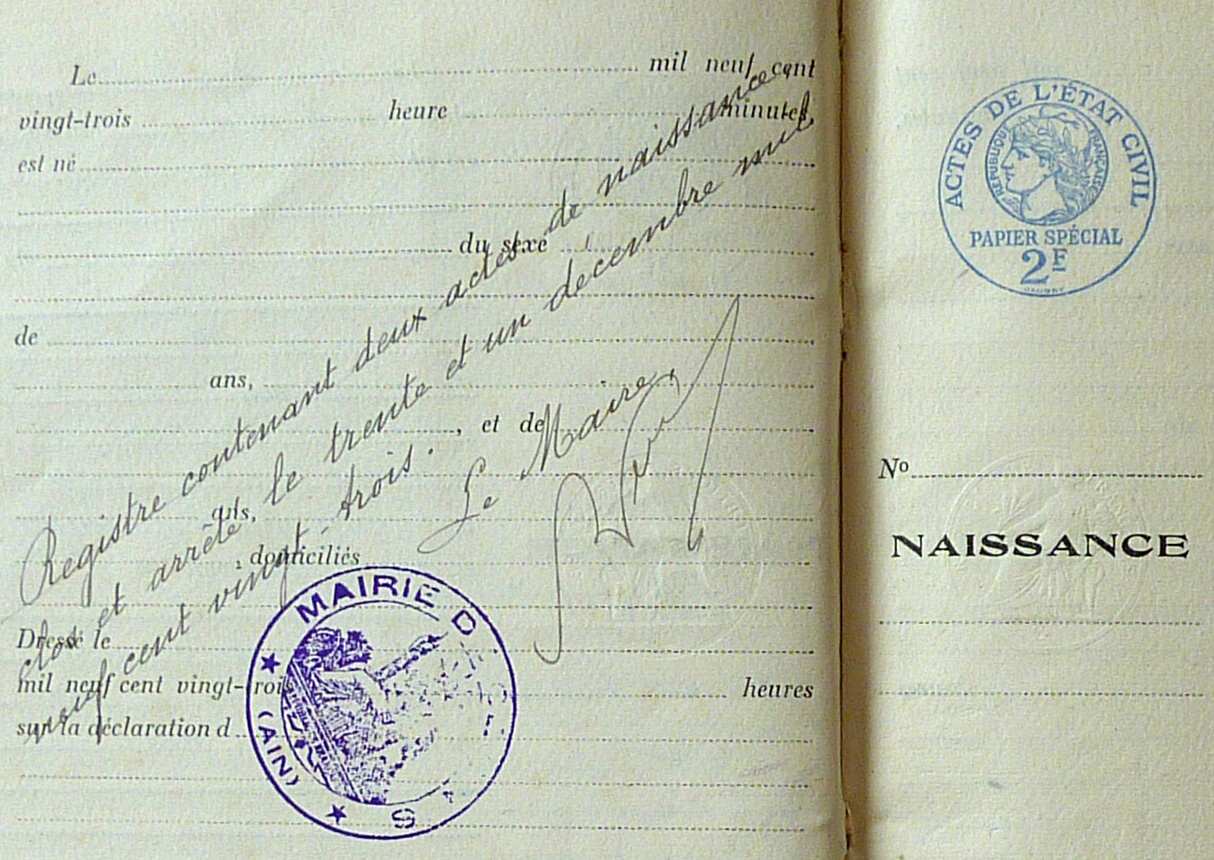 Le mil neuf cent
vingt-trois heure minutes,
est né
du sexe
de
ans,
, et de
ans,
, domiciliés
Dressé le
mil neuf cent vingt-trois heures
sur la déclaration d
Registre contenant deux actes de naissance,
clos et arrêté le trente et un decembre mil
neuf cent vingt-trois.
Le Maire,
MAIRIE D
S
(AIN)
ACTES DE L'ÉTAT CIVIL
RÉPUBLIQUE FRANÇAISE
PAPIER SPÉCIAL
2F
No
NAISSANCE